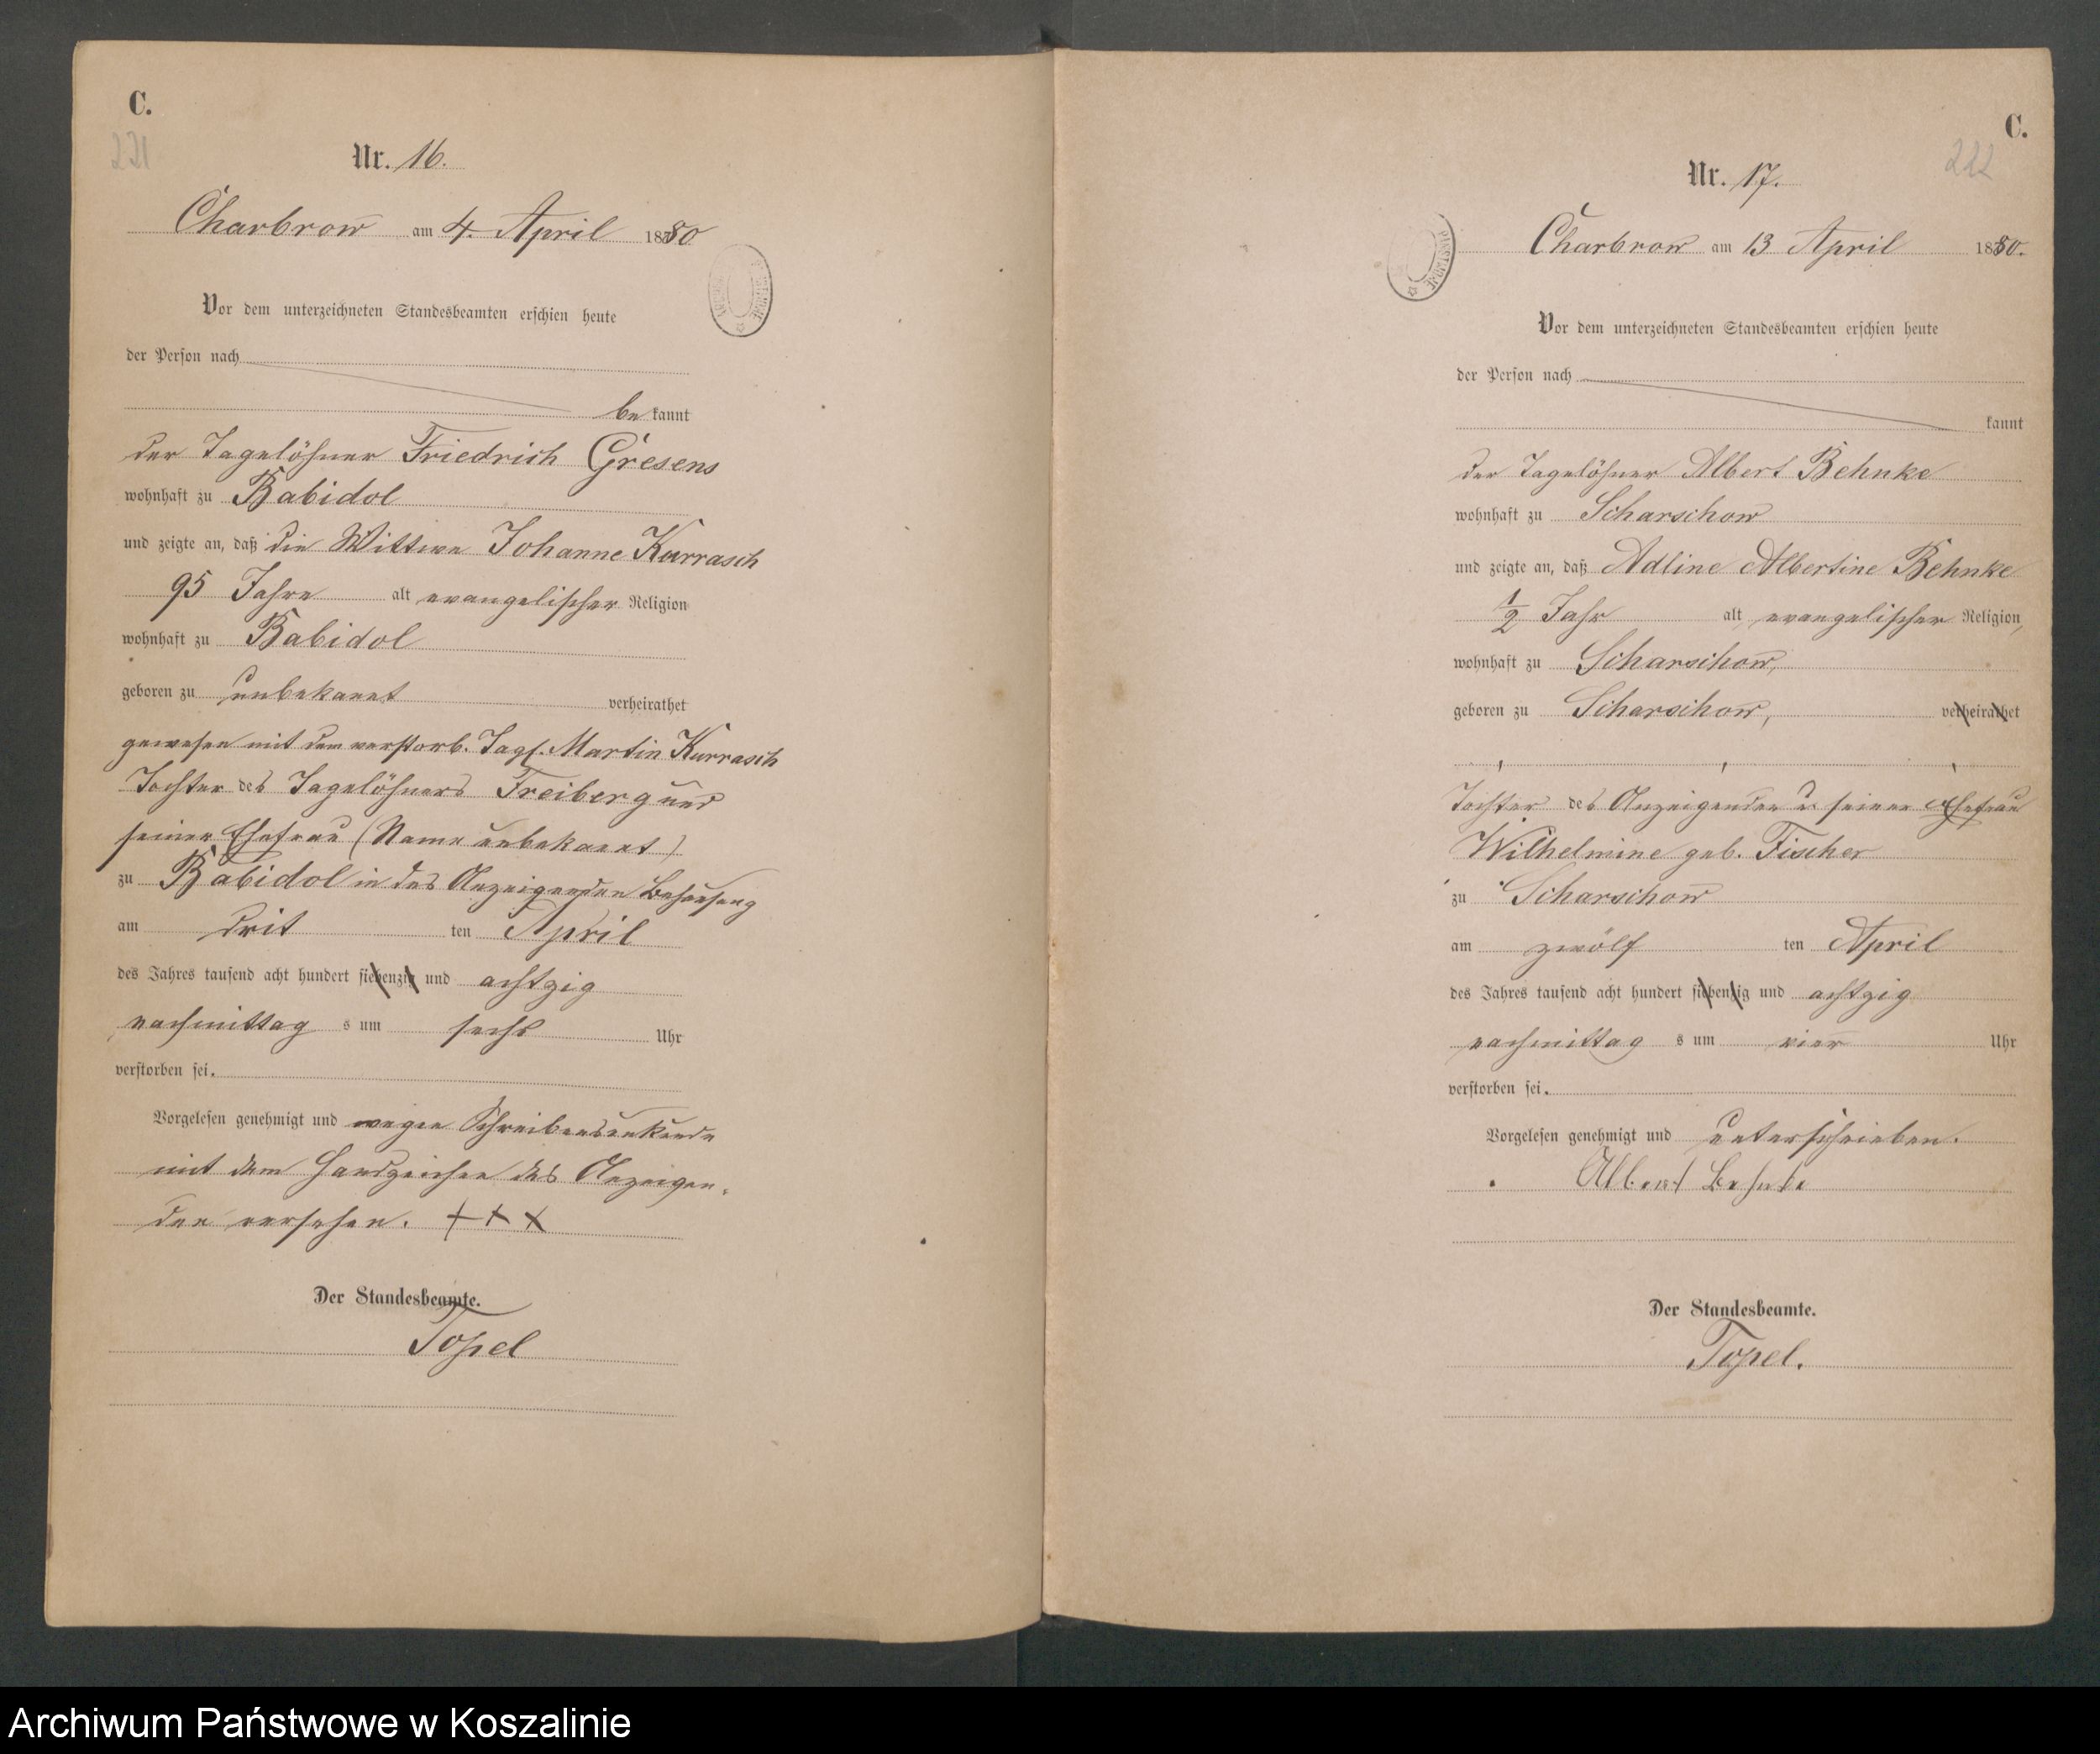 C.
221
Nr. 16.
Charbrow am 4. April 1880
Vor dem unterzeichneten Standesbeamten erschien heute
der Person nach
be kannt
der Tagelöhner Friedrich Gresens
wohnhaft zu Babidol
und zeigte an, daß die Wittwe Johanne Kurrasch
95 Jahre alt evangelischer Religion
wohnhaft zu Babidol
geboren zu unbekannt verheirathet
gewesen mit dem verstorb. Tagl. Martin Kurrasch
Tochter des Tagelöhners Freiberg und
seiner Ehefrau (Name unbekannt)
zu Babidol in des Anzeigenden Behausung
am drit ten April
des Jahres tausend acht hundert siebenzig und achtzig
nachmittag s um sechs Uhr
verstorben sei.
Vorgelesen genehmigt und wegen Schreibensunkunde
mit dem Handzeichen des Anzeigen-
den versehen. +++
Der Standesbeamte.
Topel
C.
222
Nr. 17.
Charbrow am 13 April 1880.
Vor dem unterzeichneten Standesbeamten erschien heute
der Person nach
kannt
der Tagelöhner Albert Behnke
wohnhaft zu Scharschow
und zeigte an, daß Adline Albertine Behnke
1/2 Jahr alt, evangelischer Religion,
wohnhaft zu Scharschow,
geboren zu Scharschow, verheirathet
Tochter des Anzeigenden u. seiner Ehefrau
Wilhelmine geb. Fischer
zu Scharschow
am zwölf ten April
des Jahres tausend acht hundert siebenzig und achtzig
nachmittag s um vier Uhr
verstorben sei.
Vorgelesen genehmigt und unterschrieben.
Albert Behnke
Der Standesbeamte.
Topel.
Archiwum Państwowe w Koszalinie